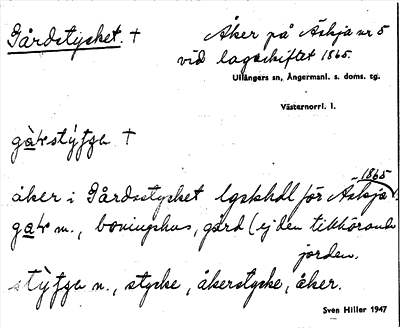 Gårdstycket. +
Åker på Äskja nr 5
vid lagaskiftet 1865.
Ullångers sn, Ångermanl. s. doms. tg.
Västernorrl. l.
+
1865
åker i Gårdsstycket lgskhdl för Äskja
m., boningshus, gård (ej den tillhörande
jorden.
n., stycke, åkerstycke, åker.
Sven Hiller 1947